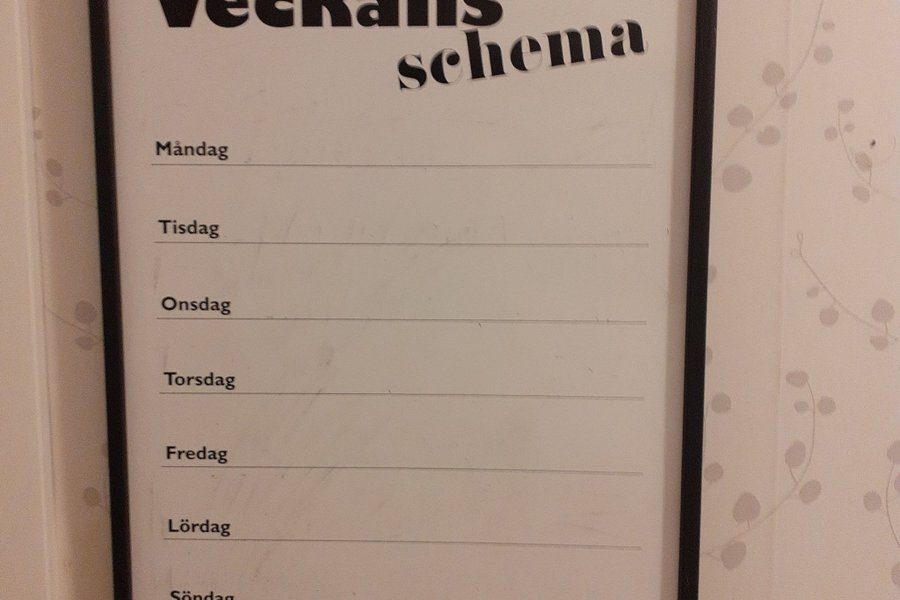 Veckans
schema
Måndag
Tisdag
Onsdag
Torsdag
Fredag
Lördag
Söndag